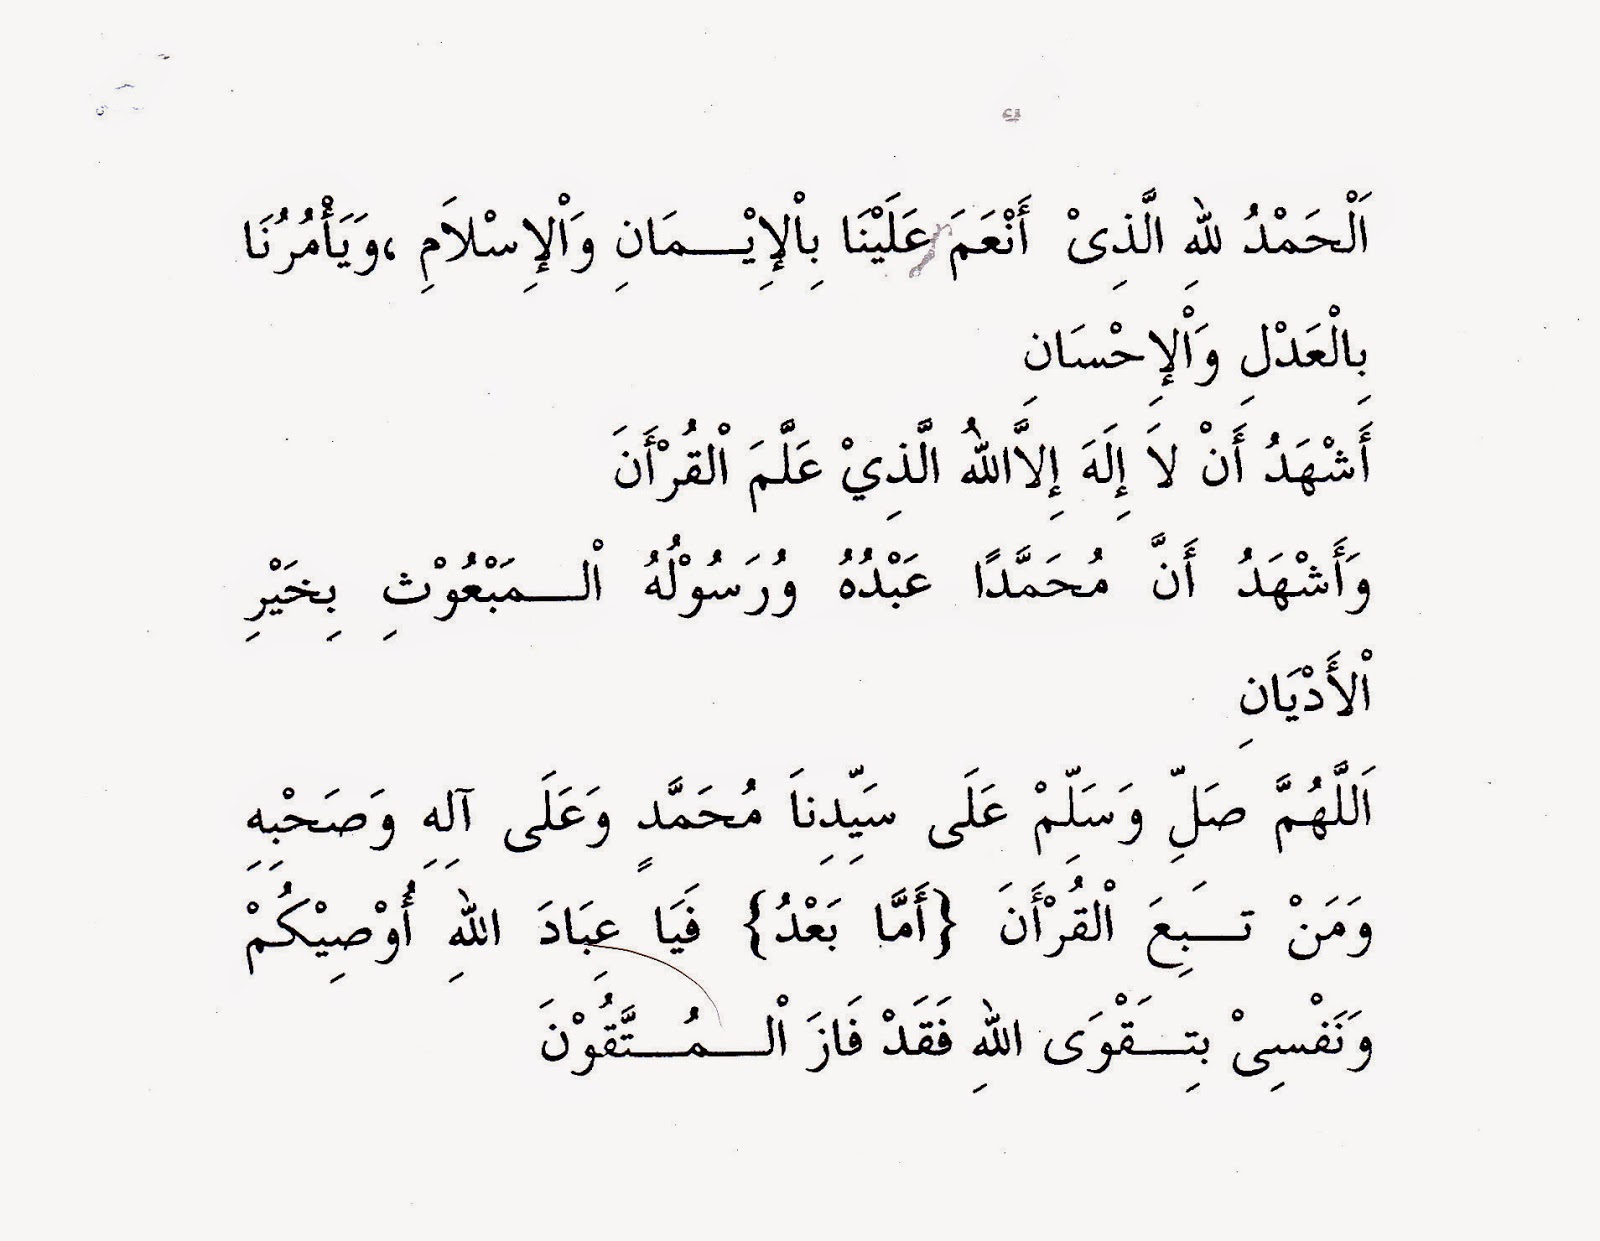 اَلْحَمْدُ للهِ الَّذِىْ أَنْعَمَ عَلَيْنَا بِاْلإِيْـــمَانِ وَاْلإِسْلاَمِ ،وَيَأْمُرُنَا
بِالْعَدْلِ وَاْلإِحْسَانِ
أَشْهَدُ أَنْ لاَ إِلَهَ إِلاَّاللهُ الَّذِيْ عَلَّمَ اْلقُرْأَنَ
وَأَشْهَدُ أَنَّ مُحَمَّدًا عَبْدُهُ وُرَسُوْلُهُ اْلـــمَبْعُوْثِ بِخَيْرِ
اْلأَدْيَانِ
اَللَّهُمَّ صَلِّ وَسَلِّمْ عَلَى سَيِّدِنِاَ مُحَمَّدٍ وَعَلَى آلِهِ وَصَحْبِهِ
وَمَنْ تـــَبِعَ اْلقُرْأَنَ {أَمَّا بَعْدُ} فَيَا عِبَادَ اللهِ أُوْصِيْكُمْ
وَنَفْسِىْ بِتِـــَقْوَى اللهِ فَقَدْ فَازَ اْلـــمُـــتَّقُوْنَ